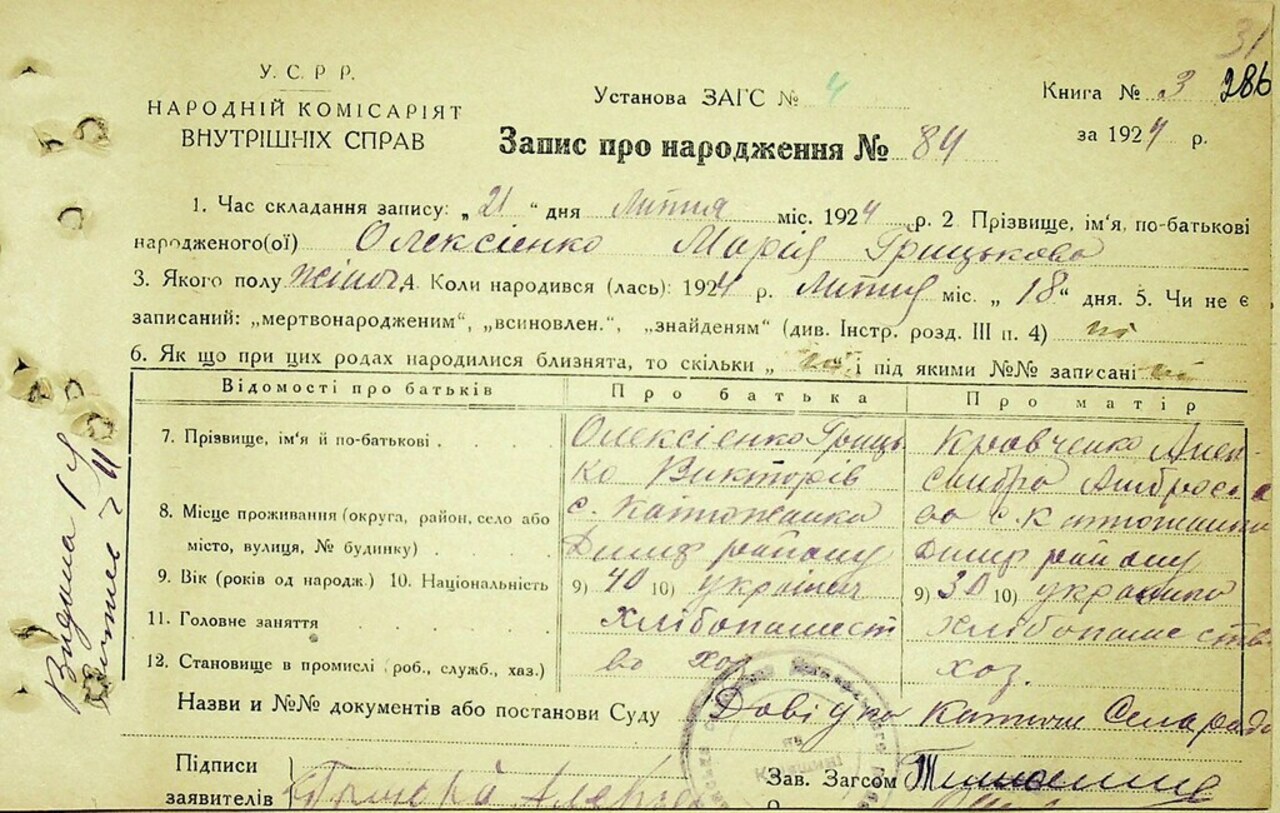 31
У. С. Р. Р.
НАРОДНІЙ КОМІСАРІЯТ
ВНУТРІШНІХ СПРАВ
Установа ЗАГС № 4
Книга № 3 286
за 1924 р.
Запис про народження № 84
1. Час складання запису: „21“ дня Липня міс. 1924 р. 2 Прізвище, ім'я, по-батькові
народженого(ої) Олексієнко Марія Грицькова
3. Якого полу жіноч. 4. Коли народився (лась): 1924 р. Липня міс. „18“ дня. 5. Чи не є
записаний: „мертвонародженим“, „всиновлен.“, „знайденям“ (див. Інстр. розд. III п. 4) ні
6. Як що при цих родах народилися близнята, то скільки „ “ і під якими №№ записані ні
Відомості про батьків Про батька Про матір
7. Прізвище, ім'я й по-батькові Олексієнко Гриць Кравченко Алек-
ко Викторів сандра Амбросі
8. Місце проживання (округа, район, село або с. Катюжанка во с. Катюжанка
місто, вулиця, № будинку) Димер району Димер району
9. Вік (років од народж.) 10. Національність 9) 40 10) українец 9) 30 10) українка
11. Головне заняття хлібопашест хлібопашеств
12. Становище в промислі (роб., служб., хаз.) во хоз. хоз.
Назви и №№ документів або постанови Суду Довідка Катюж Сельради
Підписи
заявителів
Зав. Загсом
Видана